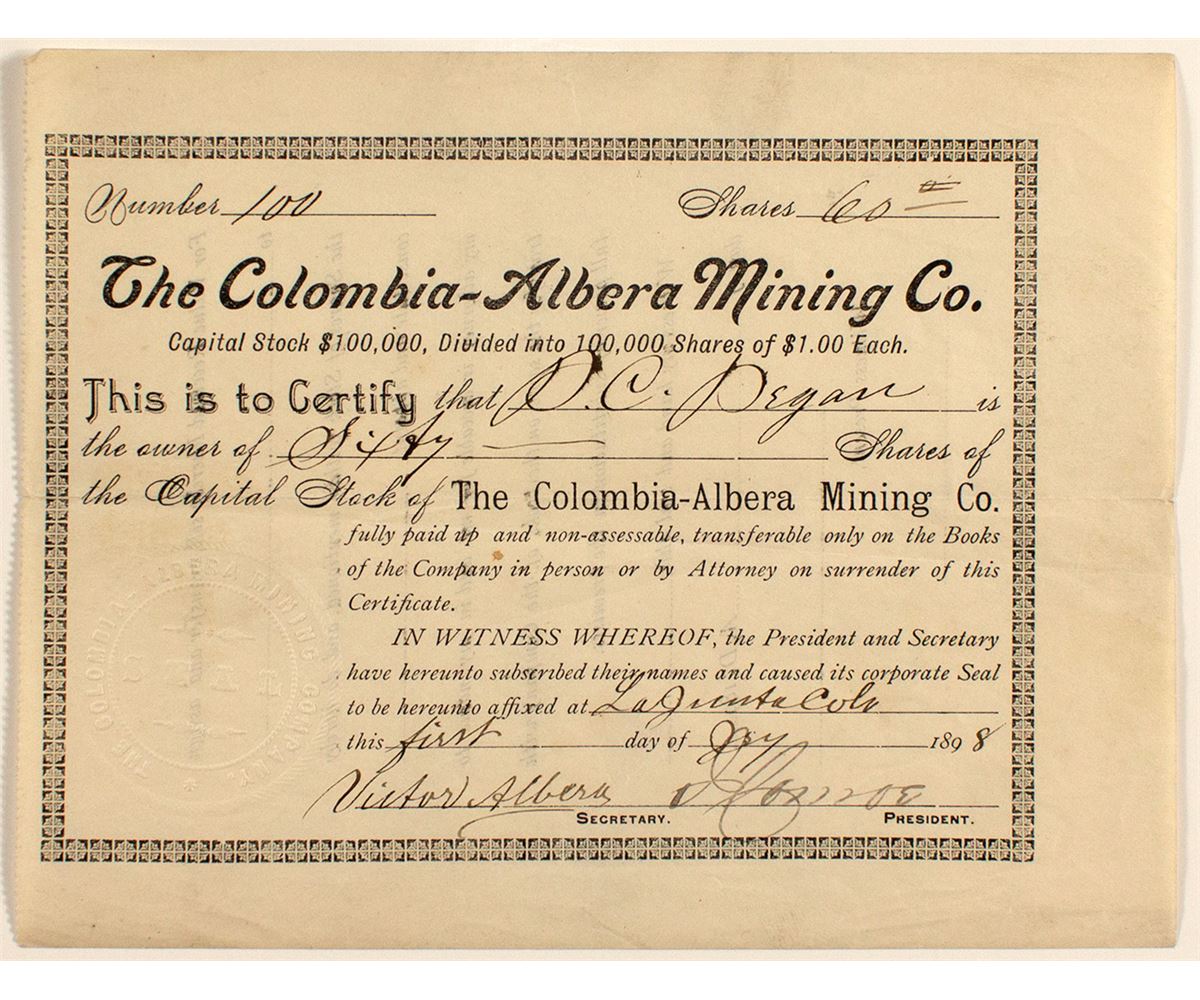 Number 100 Shares 60
The Colombia-Albera Mining Co.
Capital Stock $100,000, Divided into 100,000 Shares of $1.00 Each.
This is to Certify that C. Degan is
the owner of Sixty Shares of
the Capital Stock of The Colombia-Albera Mining Co.
fully paid up and non-assessable, transferable only on the Books
of the Company in person or by Attorney on surrender of this
Certificate.
IN WITNESS WHEREOF, the President and Secretary
have hereunto subscribed their names and caused its corporate Seal
to be hereunto affixed at La Junta Colo
this first day of 1898
Victor Albera
SECRETARY. PRESIDENT.
THE COLOMBIA-ALBERA MINING COMPANY